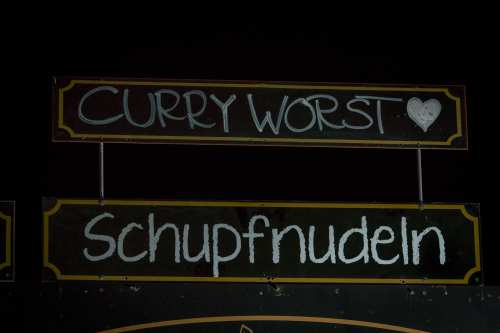 CURRY WORST ♥
Schupfnudeln